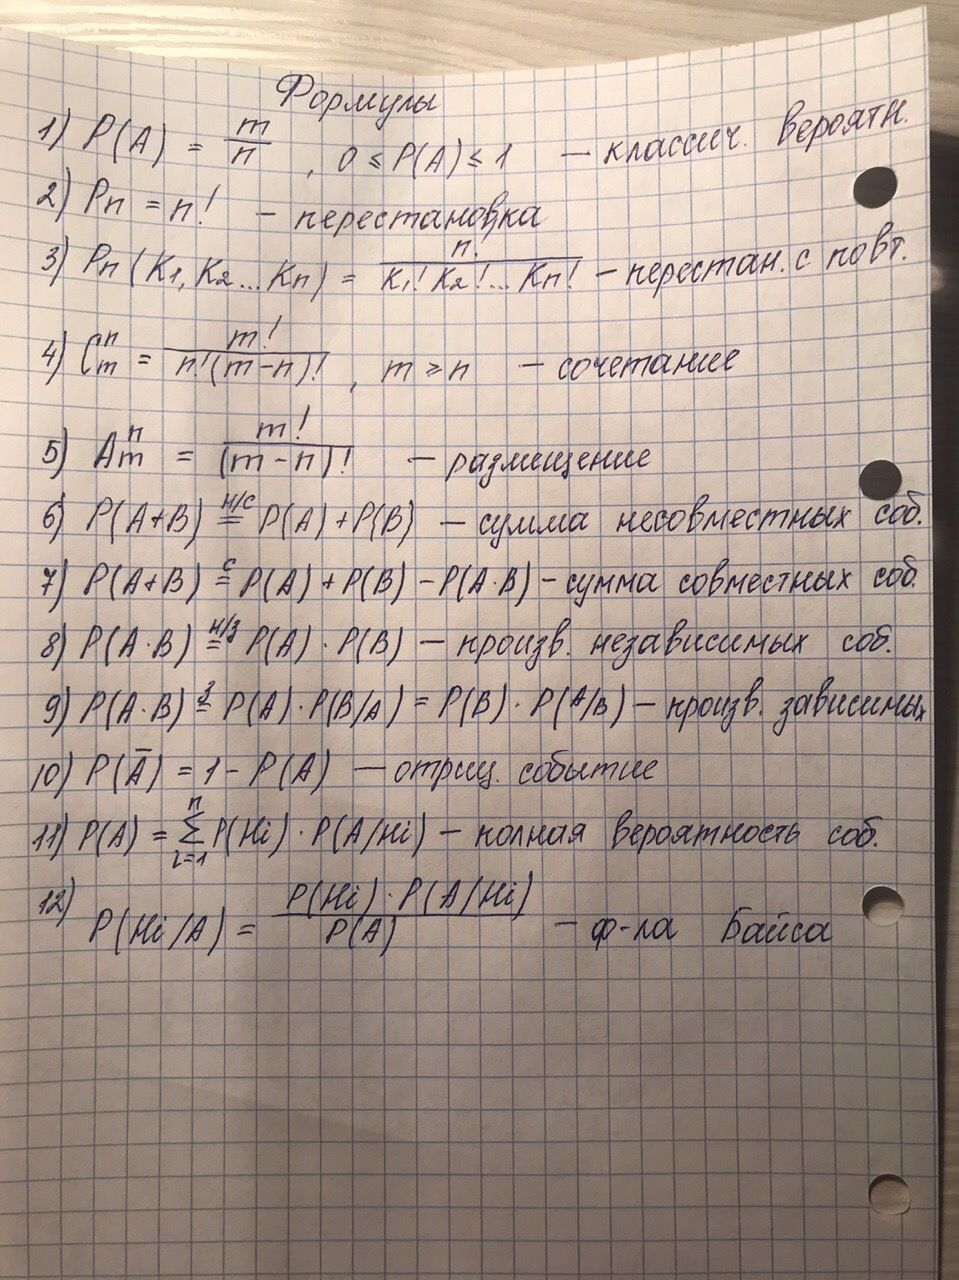 Формулы
1) P(A) = m/n , 0 ≤ P(A) ≤ 1 — классич. вероятн.
2) Pn = n! – перестановка
3) Pn (K1, K2 ... Kn) = n! / K1! K2! ... Kn! – перестан. с повт.
4) C_m^n = m! / n!(m-n)! , m ≥ n – сочетание
5) A_m^n = m! / (m-n)! – размещение
6) P(A+B) н/с= P(A) + P(B) – сумма несовместных соб.
7) P(A+B) с= P(A) + P(B) – P(A·B) – сумма совместных соб.
8) P(A·B) н/з= P(A) · P(B) – произв. независимых соб.
9) P(A·B) з= P(A) · P(B/A) = P(B) · P(A/B) – произв. зависимых
10) P(Ā) = 1 – P(A) — отриц. событие
11) P(A) = Σ_{i=1}^n P(Hi) · P(A/Hi) – полная вероятность соб.
12) P(Hi/A) = P(Hi) · P(A/Hi) / P(A) – ф-ла Байса